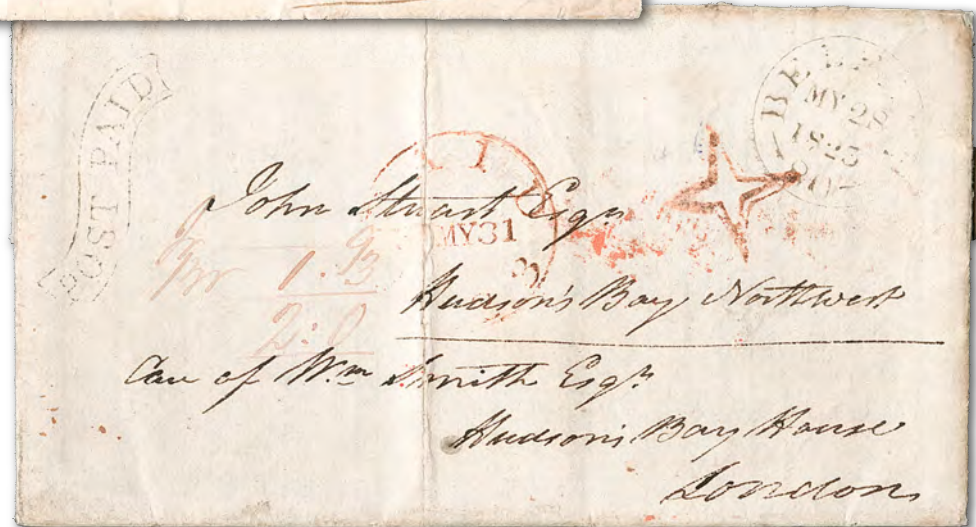 POST PAID
MY 28
1823
MY 31
John Stuart Esqr
1.
2:0
Hudson's Bay Northwest
Care of Wm Smith Esqr
Hudson's Bay House
London